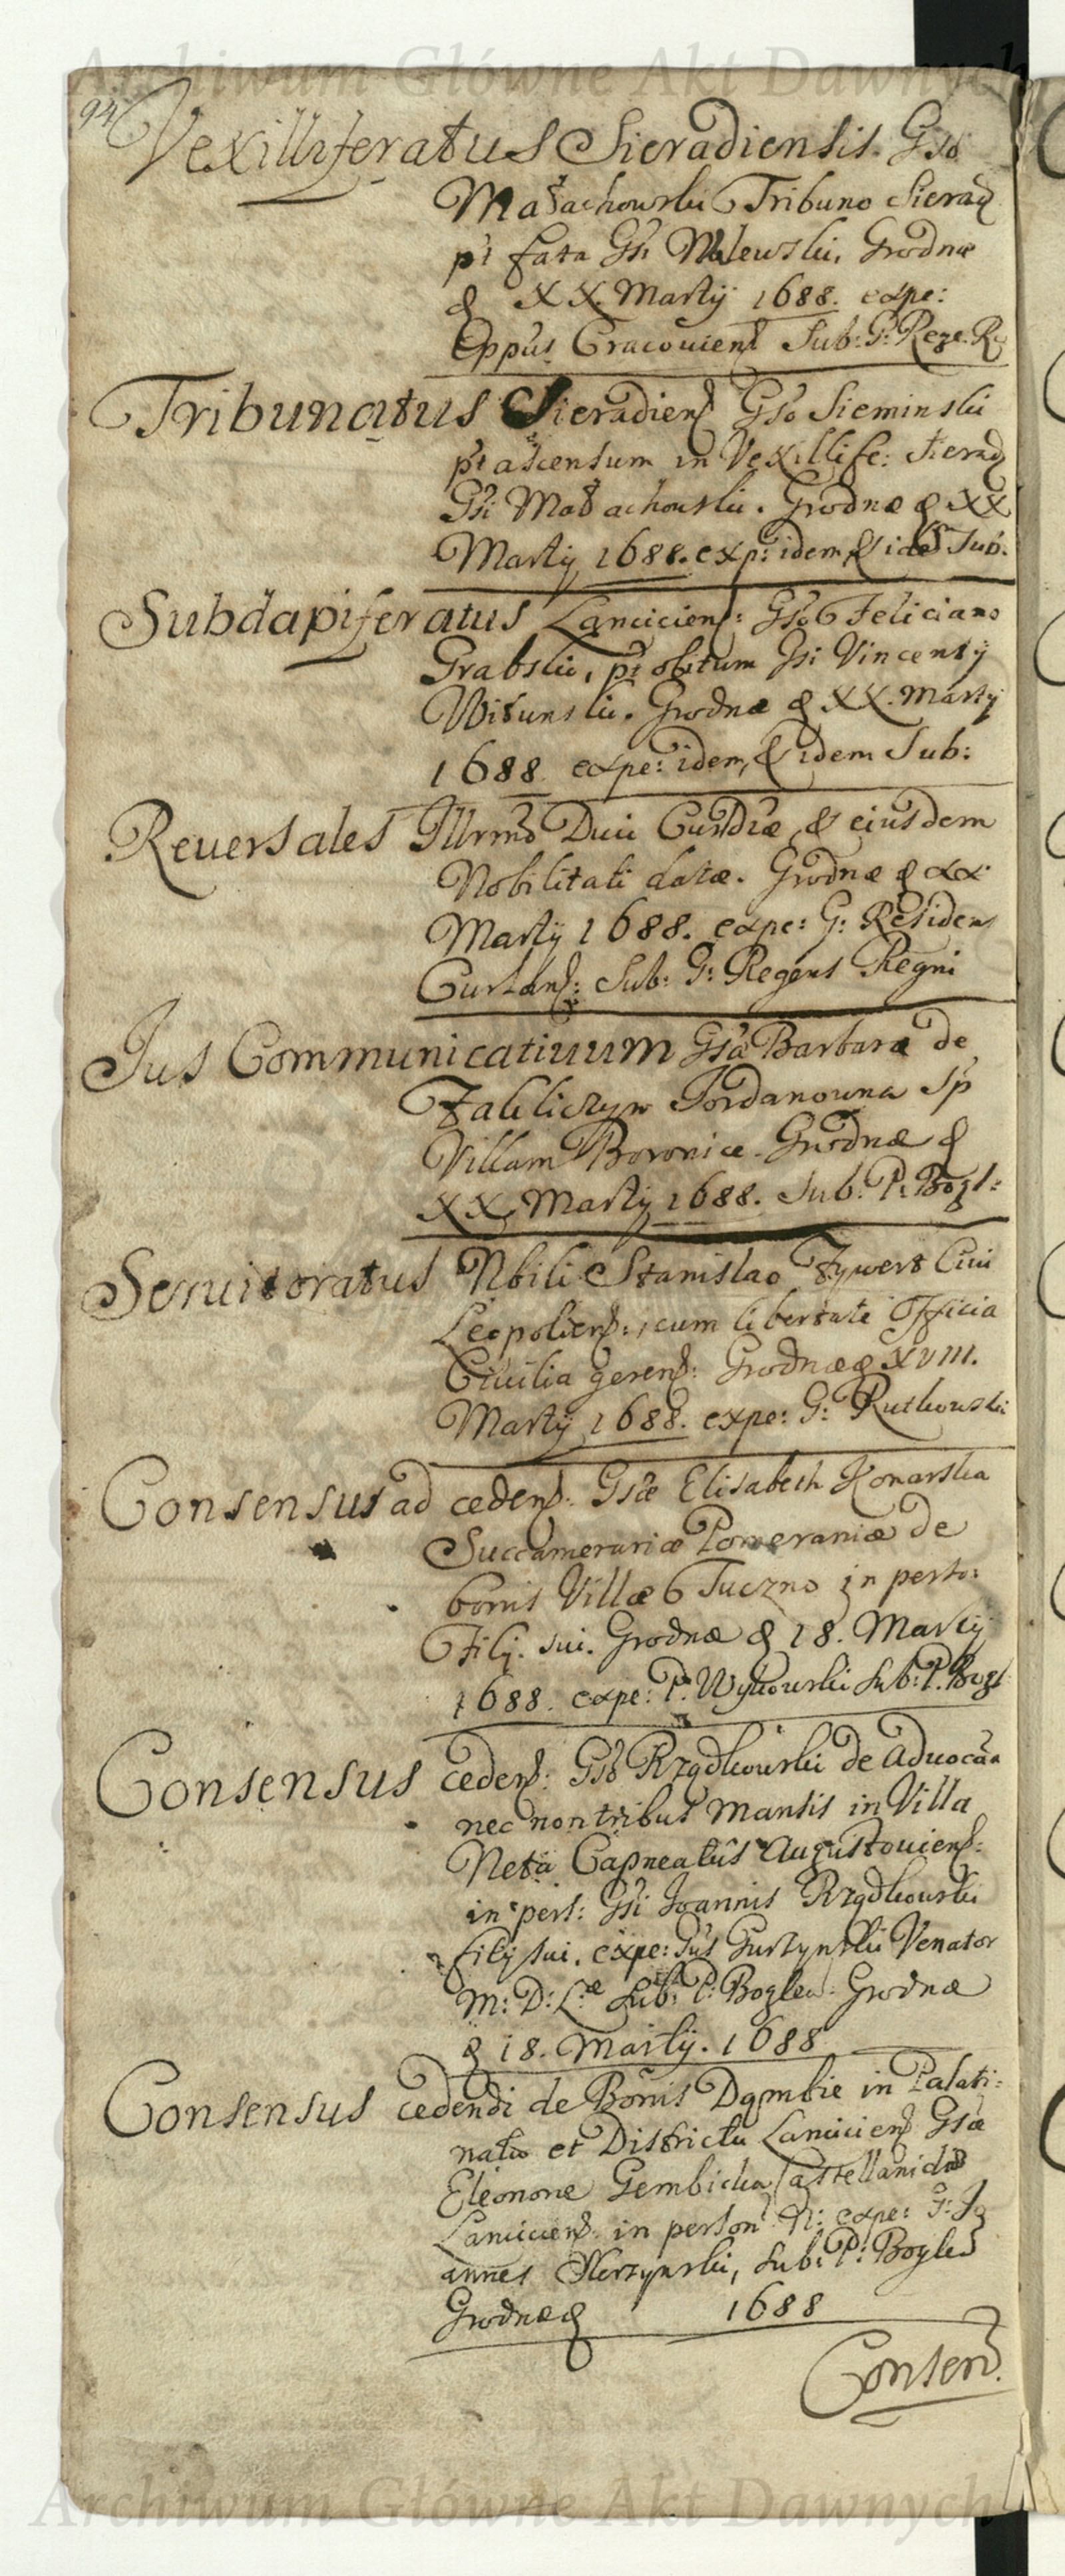 Archiwum Główne Akt Dawnych
94
Vexilliferatus Sieradiensis. Gso
Małachowski Tribuno Sierad
pt fata Gsi Milewski, Grodnæ
d XX. Martij 1688. expe:
Eppus Cracouiens Sub: G: Rege. Re
Tribunatus Sieradiens Gso Sieminski
pt ascensum in Vexillife: Sierad
Gsi Małachowski. Grodnæ d XX
Martij 1688. exp: idem & idem Sub:
Subdapiferatus Lanciciens: Gso Feliciano
Grabski, pt obitum Gsi Vincentij
Witunski. Grodnæ d XX. Martij
1688 expe: idem, & idem Sub:
Reuersales Illrmo Duci Curldiæ & eiusdem
Nobilitati datæ. Grodnæ d xx
Martij 1688. expe: G: Residens
Curlans: Sub: G: Regens Regni
Jus Communicatiuum Gsa Barbaræ de
Zakliczyn Jordanowna Sp
Villam Boronice. Grodnæ d
XX Martij 1688. Sub: P: Bogl:
Seruitoratus Nbili Stanislao Zywert Ciui
Leopoliens:, cum libertate Officia
Ciuilia gerens: Grodnæ d XVIII.
Martij 1688. expe: G: Rutkowski
Consensus ad cedens: Gsæ Elisabeth Konarska
Succamerariæ Pomeraniæ de
bonis Villæ Tuczno in perso:
Filij. sui. Grodnæ d 18. Martij
1688. expe: P: Wykowski Sub: P: Bogl
Consensus cedens: Gso Rządkowski de Aduocâa
nec non tribus Mansis in Villa
Neta Capneatûs Augustouiens:
in pers: Gsi Joannis Rządkowski
filij sui. expe: Gus Gurzynski Venator
M: D: L:æ Sub: P: Boglew: Grodnæ
d 18. Martij. 1688
Consensus cedendi de Bonis Dąmbie in Palati:
natu et Districtu Lanciciens Gsæ
Eleonoræ Gembicka Castellanidæ
Lanciciens. in person: N: expe: G: Jo
annes Skrzynski, Sub: P: Boglew
Grodnæ d 1688
Consens.
Archiwum Główne Akt Dawnych